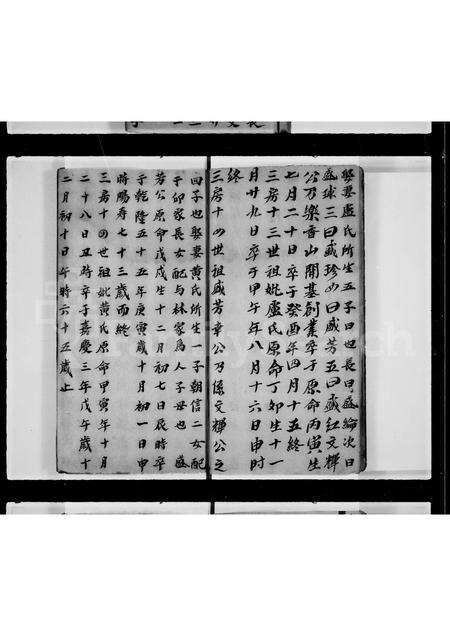 娶妻盧氏所生五子曰也長曰盛綸次曰
盛球三曰盛珍四曰盛芳五曰盛红文輝
公乃樂香山開基創業卒于原命丙寅生
七月二十日卒于癸酉年四月十五終
三房十三世祖妣盧氏原命丁卯生十一
月廿九日卒于甲午年八月十六日申時
終
三房十四世祖盛芳章公乃係文輝公之
四子也娶妻黄氏所生一子朝信二女配
于邱家長女配与林家爲人子母也盛
芳公原命戊戌生十二月初七日辰時卒
于乾隆五十五年庚寅歲十月初一日申
時陽寿七十三歲而終
三房十四世祖妣黄氏原命甲寅年十月
二十八日丑時卒于嘉慶三年戊午歲十
二月初十日午時六十五歲止